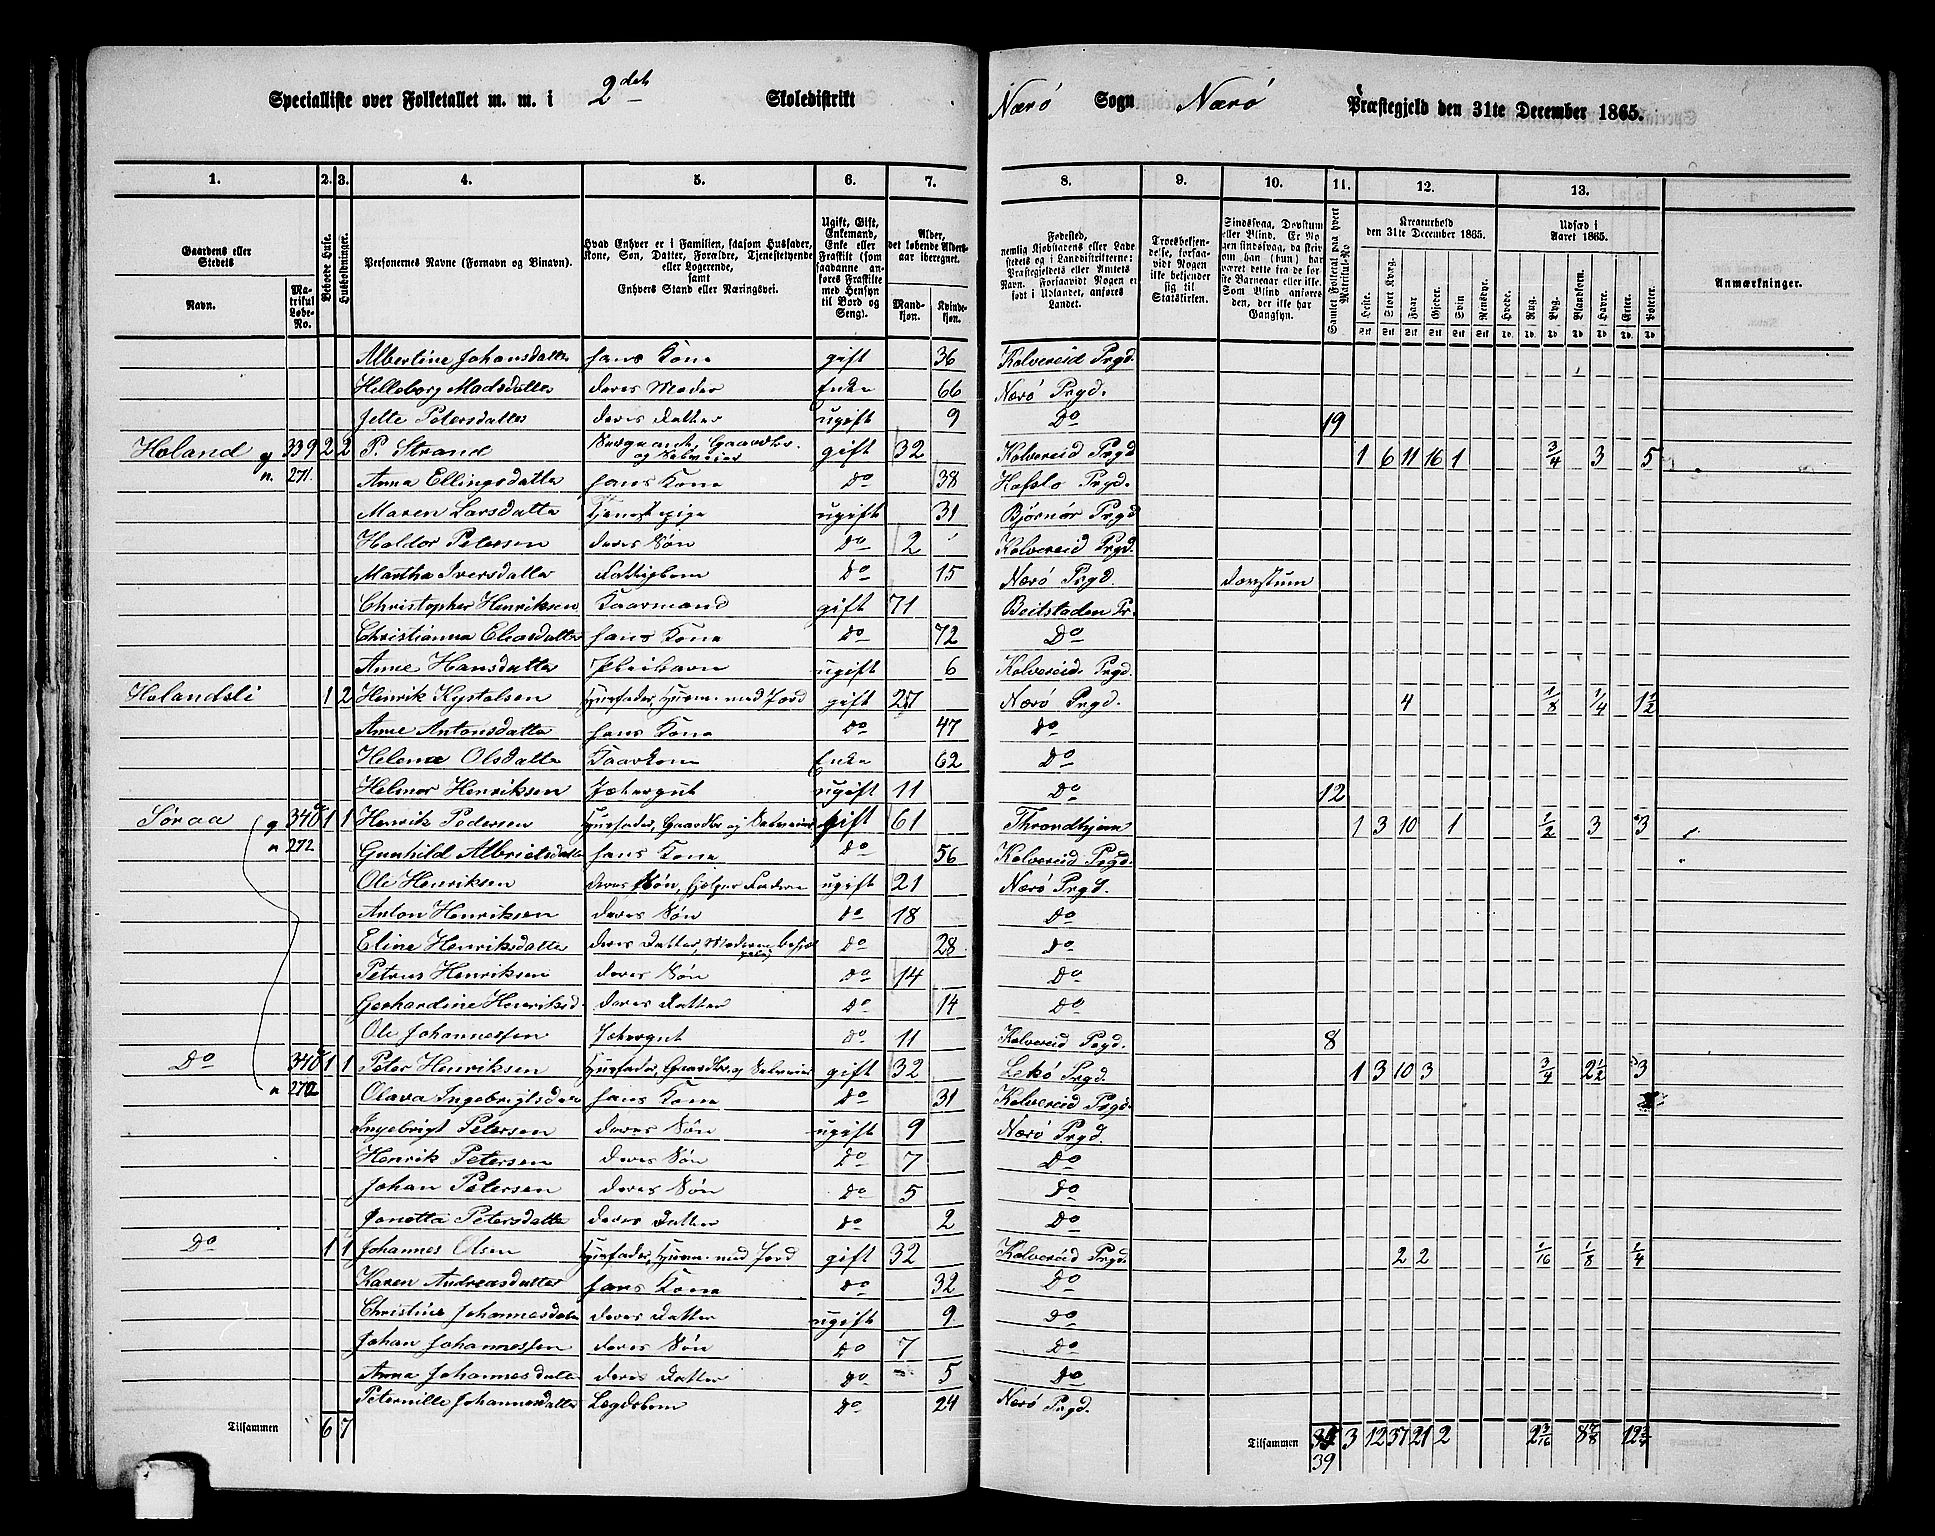 Specialliste over Folketallet m. m. i 2det Skoledistrikt Nærö Sogn Nærö Præstegjeld den 31te December 1865.
1. 2. 3. 4. 5. 6. 7. 8. 9. 10. 11. 12. 13.
Gaardens eller Stedets
Navn. Matrikul Løbe-No.
Beboede Huse.
Husholdninger.
Personernes Navne (Fornavn og Binavn).
Hvad Enhver er i Familien, saasom Husfader, Kone, Søn, Datter, Forældre, Tjenestetyende eller Logerende, samt Enhvers Stand eller Næringsvei.
Ugift, Gift, Enkemand, Enke eller Fraskilt (som saadanne anføres Fraskilte med Hensyn til Bord og Seng).
Alder, det løbende Aldersaar iberegnet.
Mandkjøn. Kvindekjøn.
Fødested, nemlig Kjøbstadens eller Ladestedets og i Landdistrikterne: Præstegjeldets eller Amtets Navn. Forsaavidt Nogen er født i Udlandet, anføres Landet.
Troesbekjendelse, forsaavidt Nogen ikke bekjender sig til Statskirken.
Sindssvag, Døvstum eller Blind. Er Nogen sindssvag, da skrives som han (hun) har været dette fra de første Barneaar eller ikke. Som Blind anføres den, der ikke har Gangsyn.
Samlet Folketal paa hvert Matrikul-No
Kreaturhold den 31te December 1865.
Heste. Stort Kvæg. Faar. Gjeder. Svin Rensdyr.
Udsæd i Aaret 1865.
Hvede. Rug. Byg. Blandkorn. Havre. Erter. Poteter.
Anmærkninger.
Albertine Johansdatter hans Kone gift 36 Kolvereid Prgd.
Helleborg Madsdatter deres Moder Enke 66 Nærö Prgd.
Jelle Petersdatter deres Datter ugift 9 Do 19
Holand g 339 2 2 P. Strand Gaardbr. og Selveier gift 32 Kolvereid Prgd 1 6 11 16 1 3/4 3 5
n. 271. Anna Ellingsdatter hans Kone Do 38 Hafslo Prgd.
Maren Larsdatter Tjenestepige ugift 31 Bjørnör Prgd
Haldor Petersen deres Søn Do 2 Kolvereid Prgd.
Martha Iversdatter Fattiglem Do 15 Nærö Prgd. Døvstum
Christopher Henriksen Kaarmand gift 71 Beitstaden Pr.
Christianna Eliasdatter hans Kone Do 72 Do
Anne Hansdatter Pleiebarn ugift 6 Kolvereid Prgd.
Holandsli 1 2 Henrik Kystalsen Husfader, Husm. med Jord gift 27 Nærö Prgd. 4 1/8 1/4 1 1/2
Anne Antonsdatter hans Kone Do 47 Do
Helena Olsdatter Kaarkone Enke 62 Do
Helmer Henriksen Jætergut ugift 11 Do 12
Söraa g 340 1 1 Henrik Pedersen Husfader, Gaardbr og Selveier gift 61 Throndhjem 1 3 10 1 1/2 3 3
n 272 Gunhild Albrietsdatter hans Kone Do 56 Kolvereid Prgd.
Ole Henriksen deres Søn, hjelper Faderen ugift 21 Nærö Prgd.
Anton Henriksen deres Søn Do 18 Do
Eline Henriksdatter deres Datter, Moderen Do 28 Do
Petrus Henriksen deres Søn Do 14 Do
Gerhardine Henriksd deres Datter Do 14 Do
Ole Johannessen Jætergut Do 11 Kolvereid Prgd. 8
Do 340 1 1 Peter Henriksen Husfader, Gaardbr. og Selveier gift 32 Lekö Prgd. 1 3 10 3 3/4 2 1/2 3
n 272 Olava Ingebrigtsdatter hans Kone Do 31 Kolvereid Prgd.
Ingebrigt Petersen deres Søn ugift 9 Nærö Prgd.
Henrik Petersen deres Søn Do 7 Do
Johan Petersen deres Søn Do 5 Do
Janetta Petersdatter deres Datter Do 2 Do
Do 1 1 Johannes Olsen Husfader, Husm. med Jord gift 32 Kolvereid Prgd. 2 2 1/16 1/8 1/4
Karen Andreasdatter hans Kone Do 32 Do
Christine Johannesdatter deres Datter ugift 9 Do
Johan Johannessen deres Søn Do 7 Do
Anna Johannesdatter deres Datter Do 5 Do
Peternille Johannesdatter Lægdslem Do 24 Nærö Prgd.
Tilsammen 6 7 Tilsammen 39 3 12 37 21 2 2 3/16 8 7/8 12 3/4